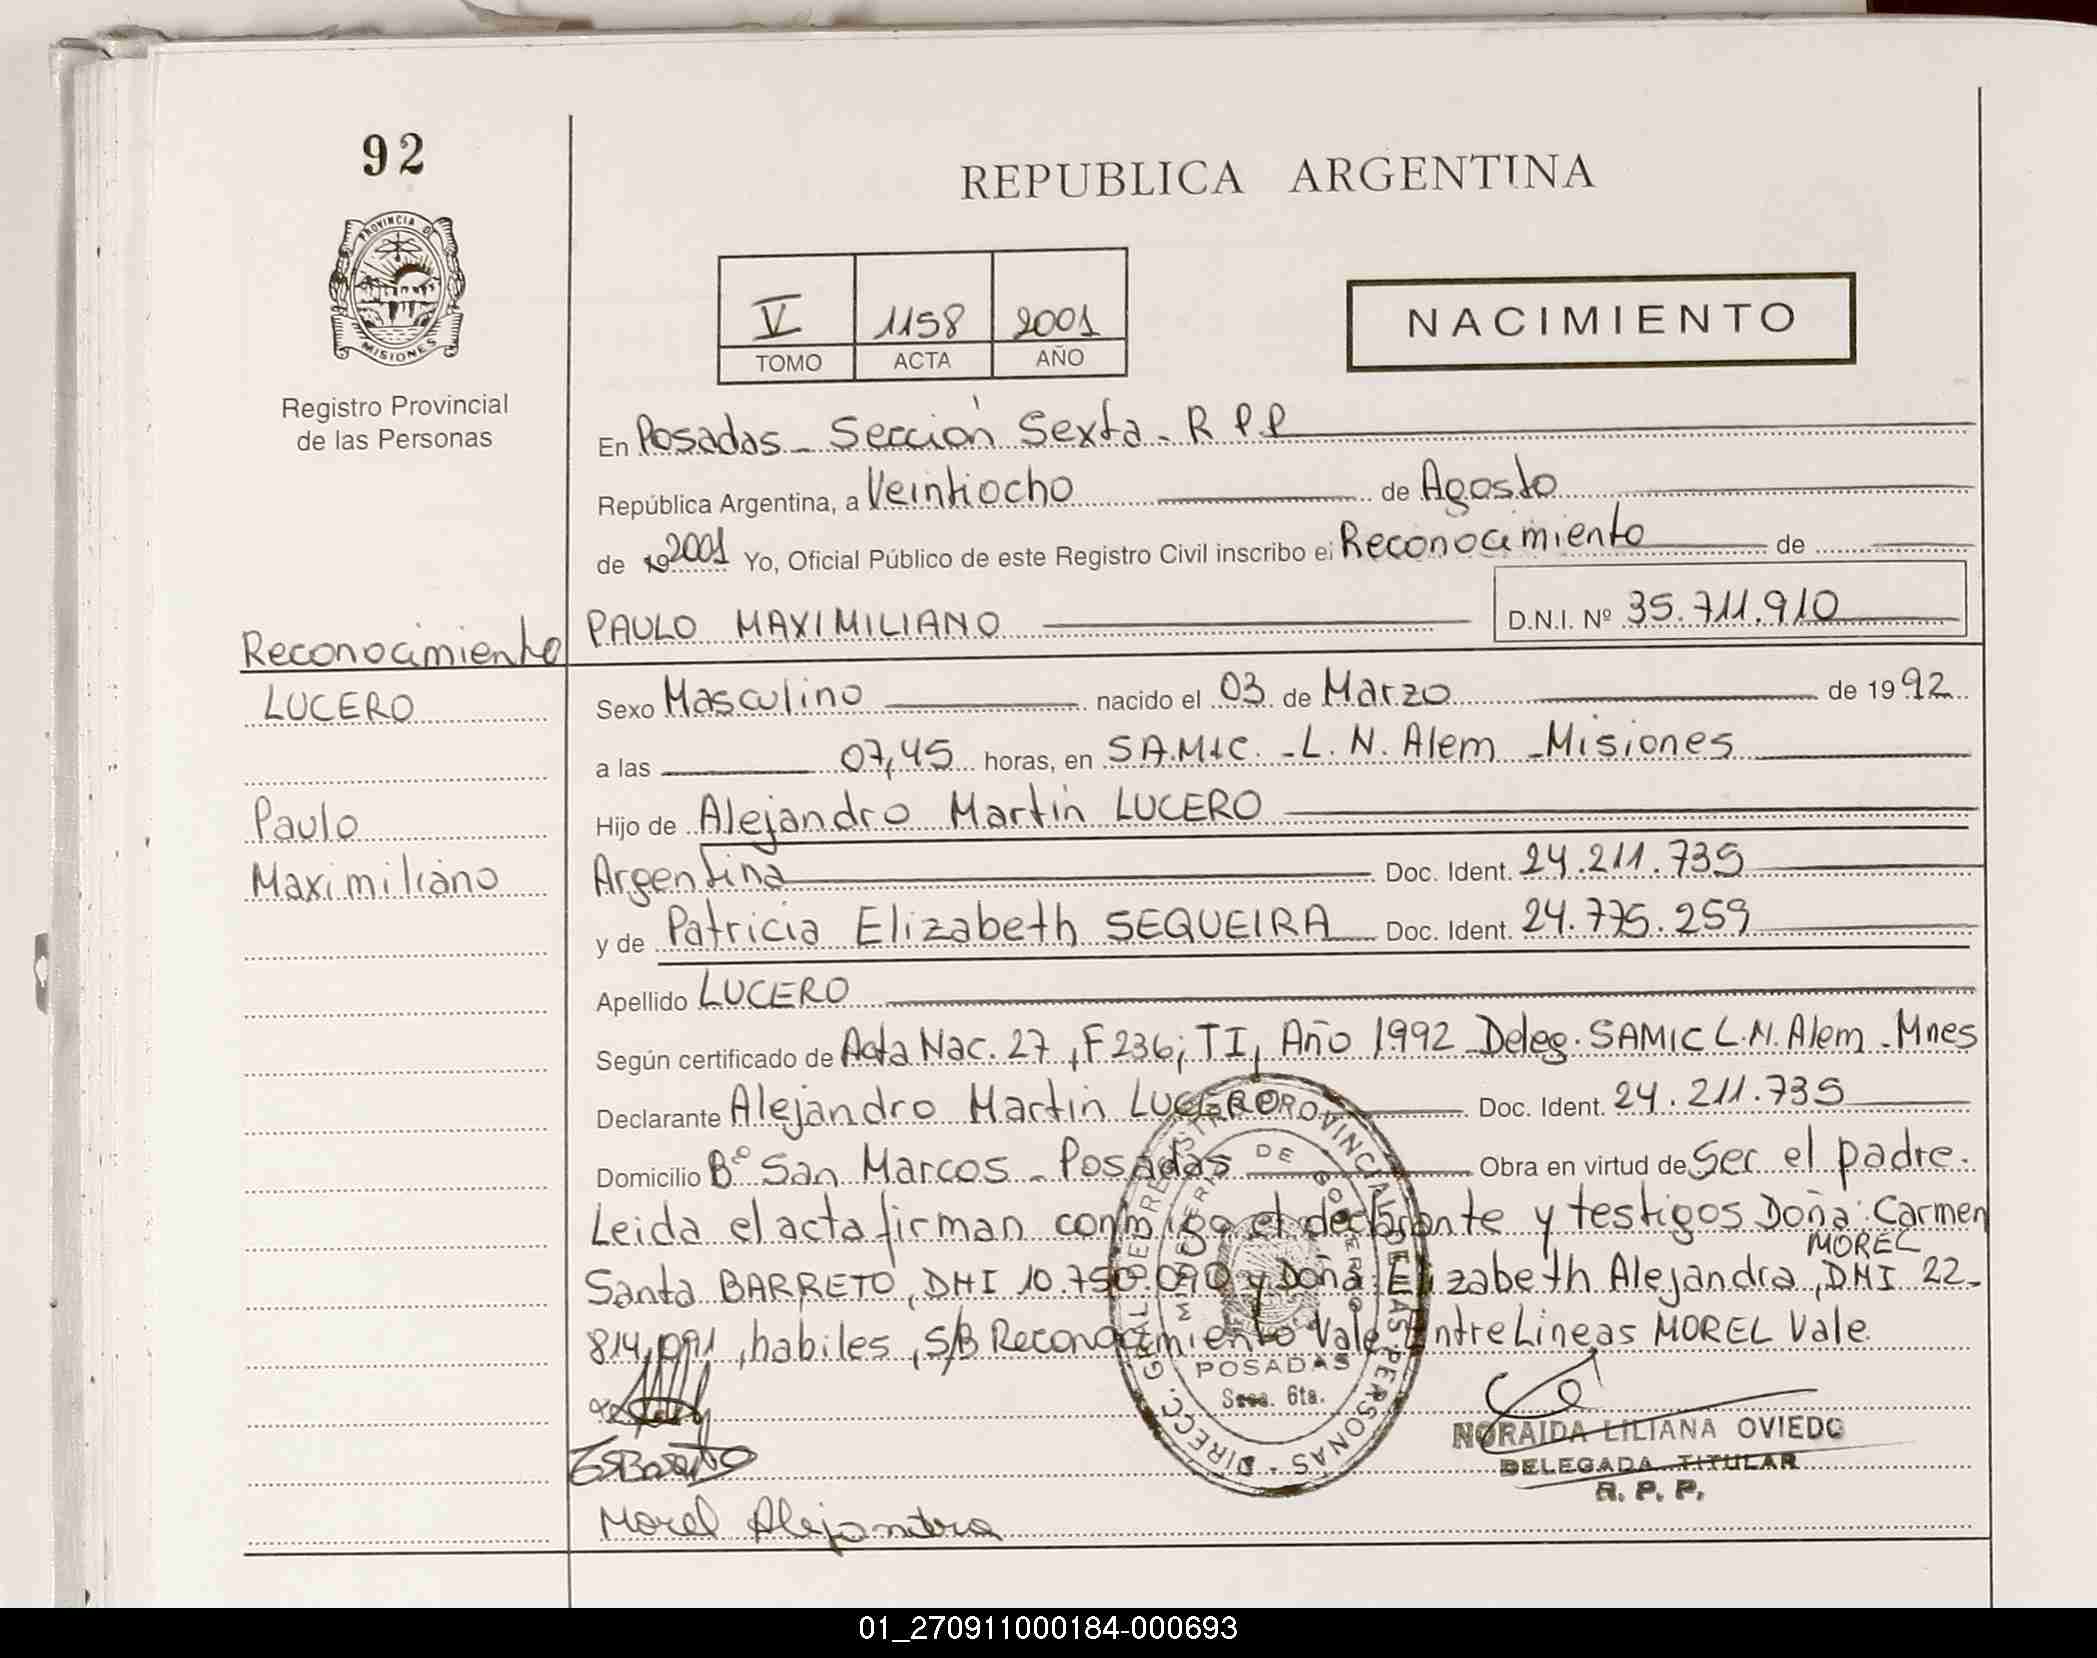 92
REPUBLICA ARGENTINA
PROVINCIA D
MISIONES
Registro Provincial
de las Personas
V 1158 2001
TOMO ACTA AÑO
NACIMIENTO
En Posadas - Sección Sexta - R P P
República Argentina, a Veintiocho de Agosto
de 19 2001 Yo, Oficial Público de este Registro Civil inscribo el Reconocimiento de
PAULO MAXIMILIANO D.N.I. Nº 35.711.910
Reconocimiento
LUCERO
Paulo
Maximiliano
Sexo Masculino nacido el 03 de Marzo de 1992
a las 07,45 horas, en S.A.M.I.C. - L. N. Alem - Misiones
Hijo de Alejandro Martín LUCERO
Argentina Doc. Ident. 24.211.735
y de Patricia Elizabeth SEQUEIRA Doc. Ident. 24.775.259
Apellido LUCERO
Según certificado de Acta Nac. 27, F 236; T I, Año 1992 Deleg. SAMIC L.N. Alem - Mnes
Declarante Alejandro Martin LUCERO Doc. Ident. 24.211.735
Domicilio Bº San Marcos - Posadas Obra en virtud de Ser el padre.
Leida el acta firman conmigo el declarante y testigos Doña: Carmen
MOREL
Santa BARRETO, DNI 10.750.090 y Doña: Elizabeth Alejandra, DNI 22-
814.091, habiles, S/B Reconocimiento Vale, Entre Lineas MOREL Vale.
DIRECC. GRAL DE REGISTRO PROVINCIAL DE LAS PERSONAS
MINISTERIO DE GOBIERNO
POSADAS
Secc. 6ta.
NORAIDA LILIANA OVIEDO
DELEGADA TITULAR
R. P. P.
Morel Alejandra
01_270911000184-000693